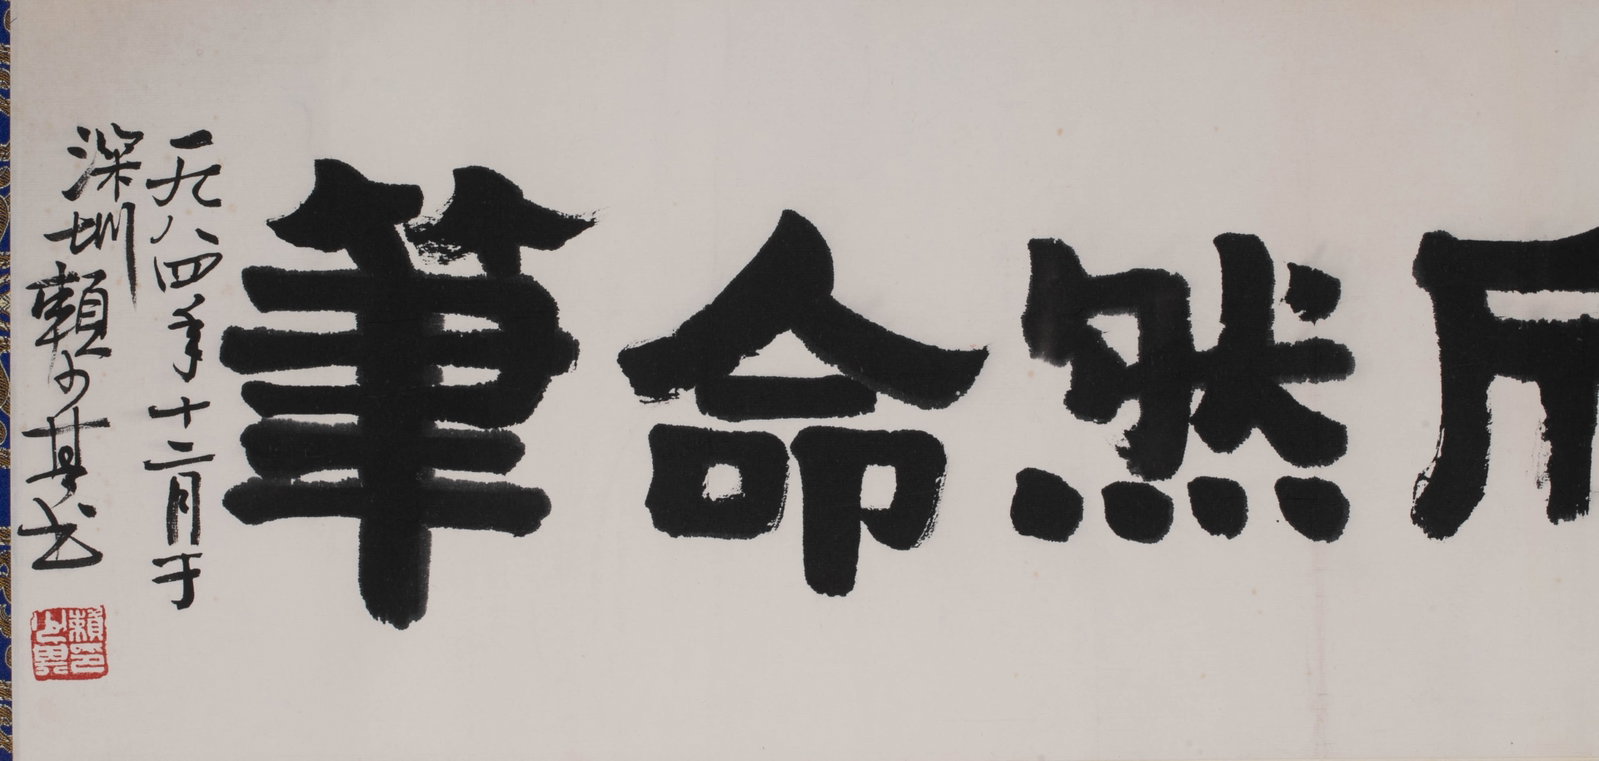 然命筆
一九八四年十二月于
深圳賴少其书
賴印少其